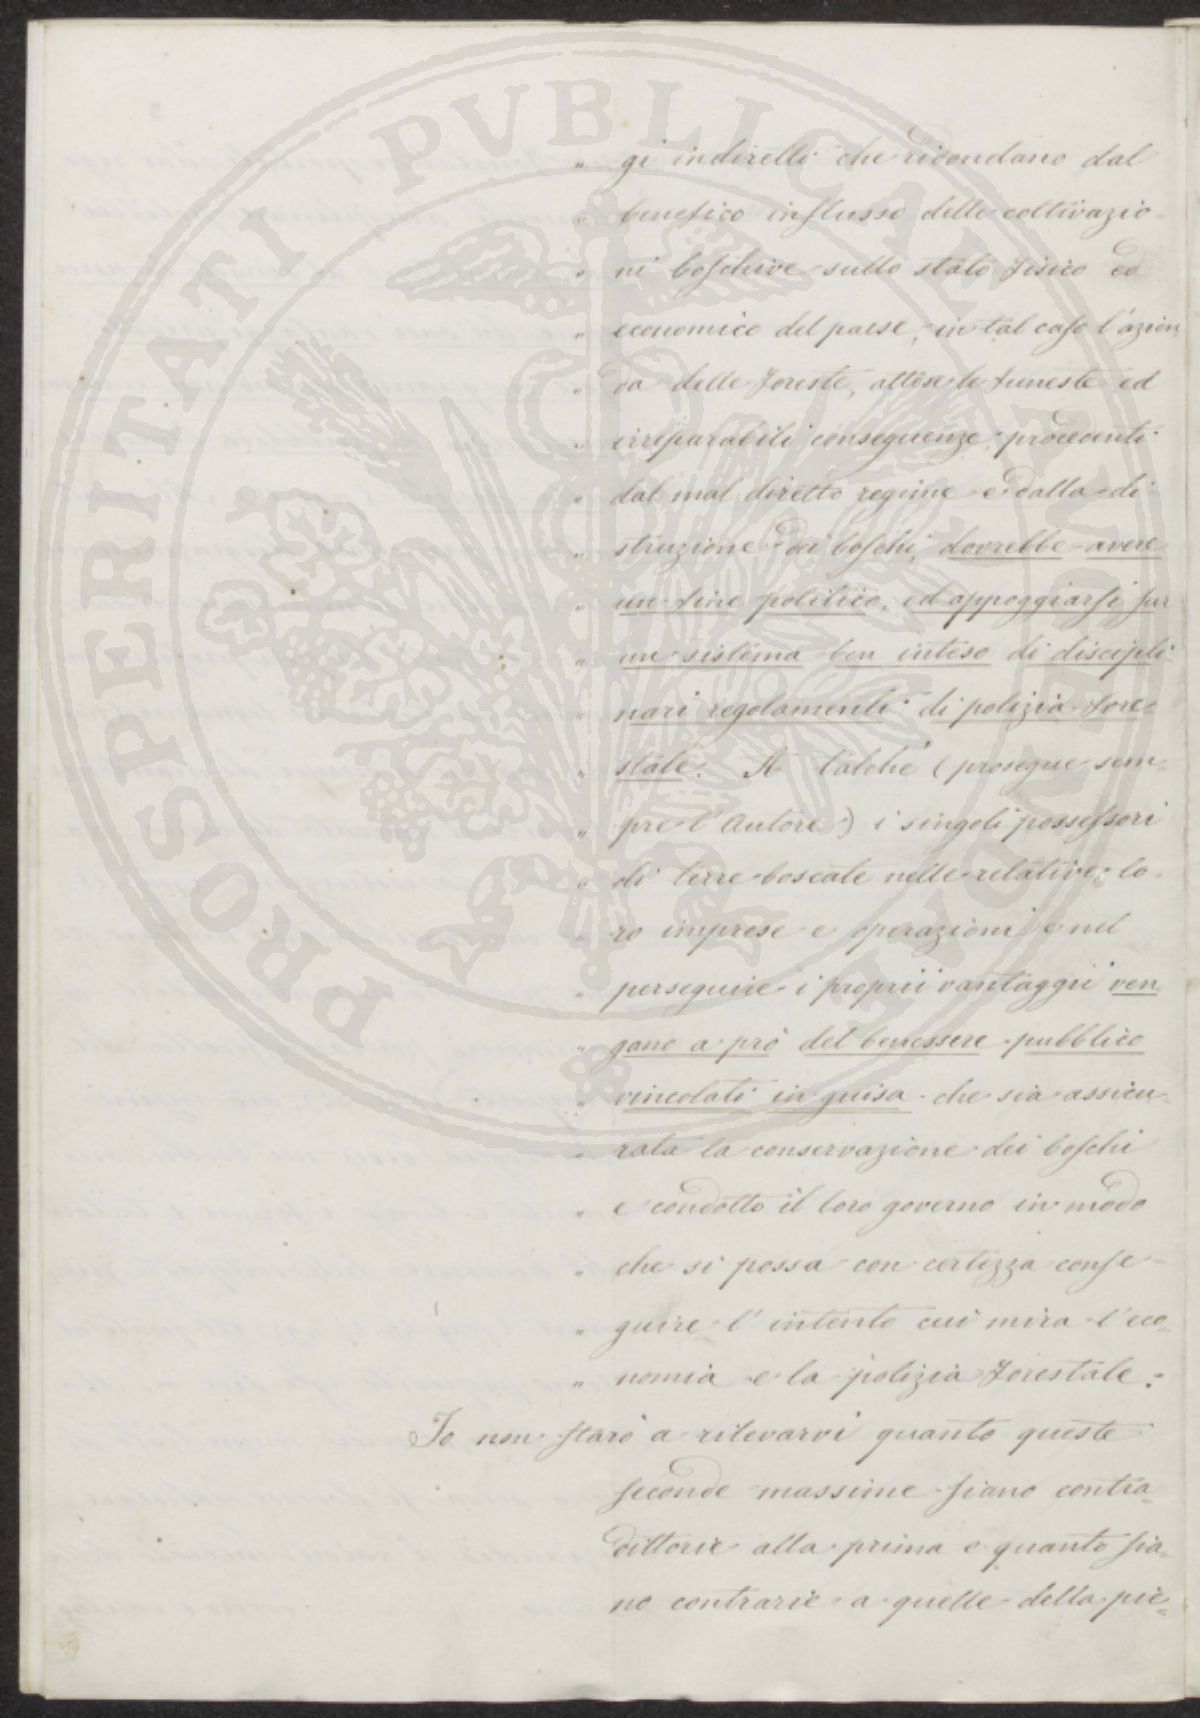 PROSPERITATI PVBLICAE AVGENDAE
„ gi indiretti che ridondano dal
„ benefico influsso delle coltivazio-
„ ni boschive sullo stato fisico ed
„ economico del paese, in tal caso l'azien
„ da delle foreste, attese le funeste ed
„ irreparabili conseguenze procedenti
„ dal mal diretto regime e dalla di-
„ struzione dei boschi, dovrebbe avere
„ un fine politico, ed appoggiarsi sur
„ un sistema ben inteso di discipli-
„ nari regolamenti di polizia fore=
„ stale. A talchè (prosegue sem-
„ pre l'Autore) i singoli possessori
„ di terre boscate nelle relative lo-
„ ro imprese e operazioni e nel
„ perseguire i proprii vantaggi ven
„ gano a prò del benessere pubblico
„ vincolati in guisa che sia assicu-
„ rata la conservazione dei boschi
„ e condotto il loro governo in modo
„ che si possa con certezza conse-
„ guire l'intento cui mira l'eco-
„ nomia e la polizia forestale.
Io non starò a rilevarvi quanto queste
seconde massime siano contra-
dittorie alla prima e quanto sia-
no contrarie a quelle della pie-